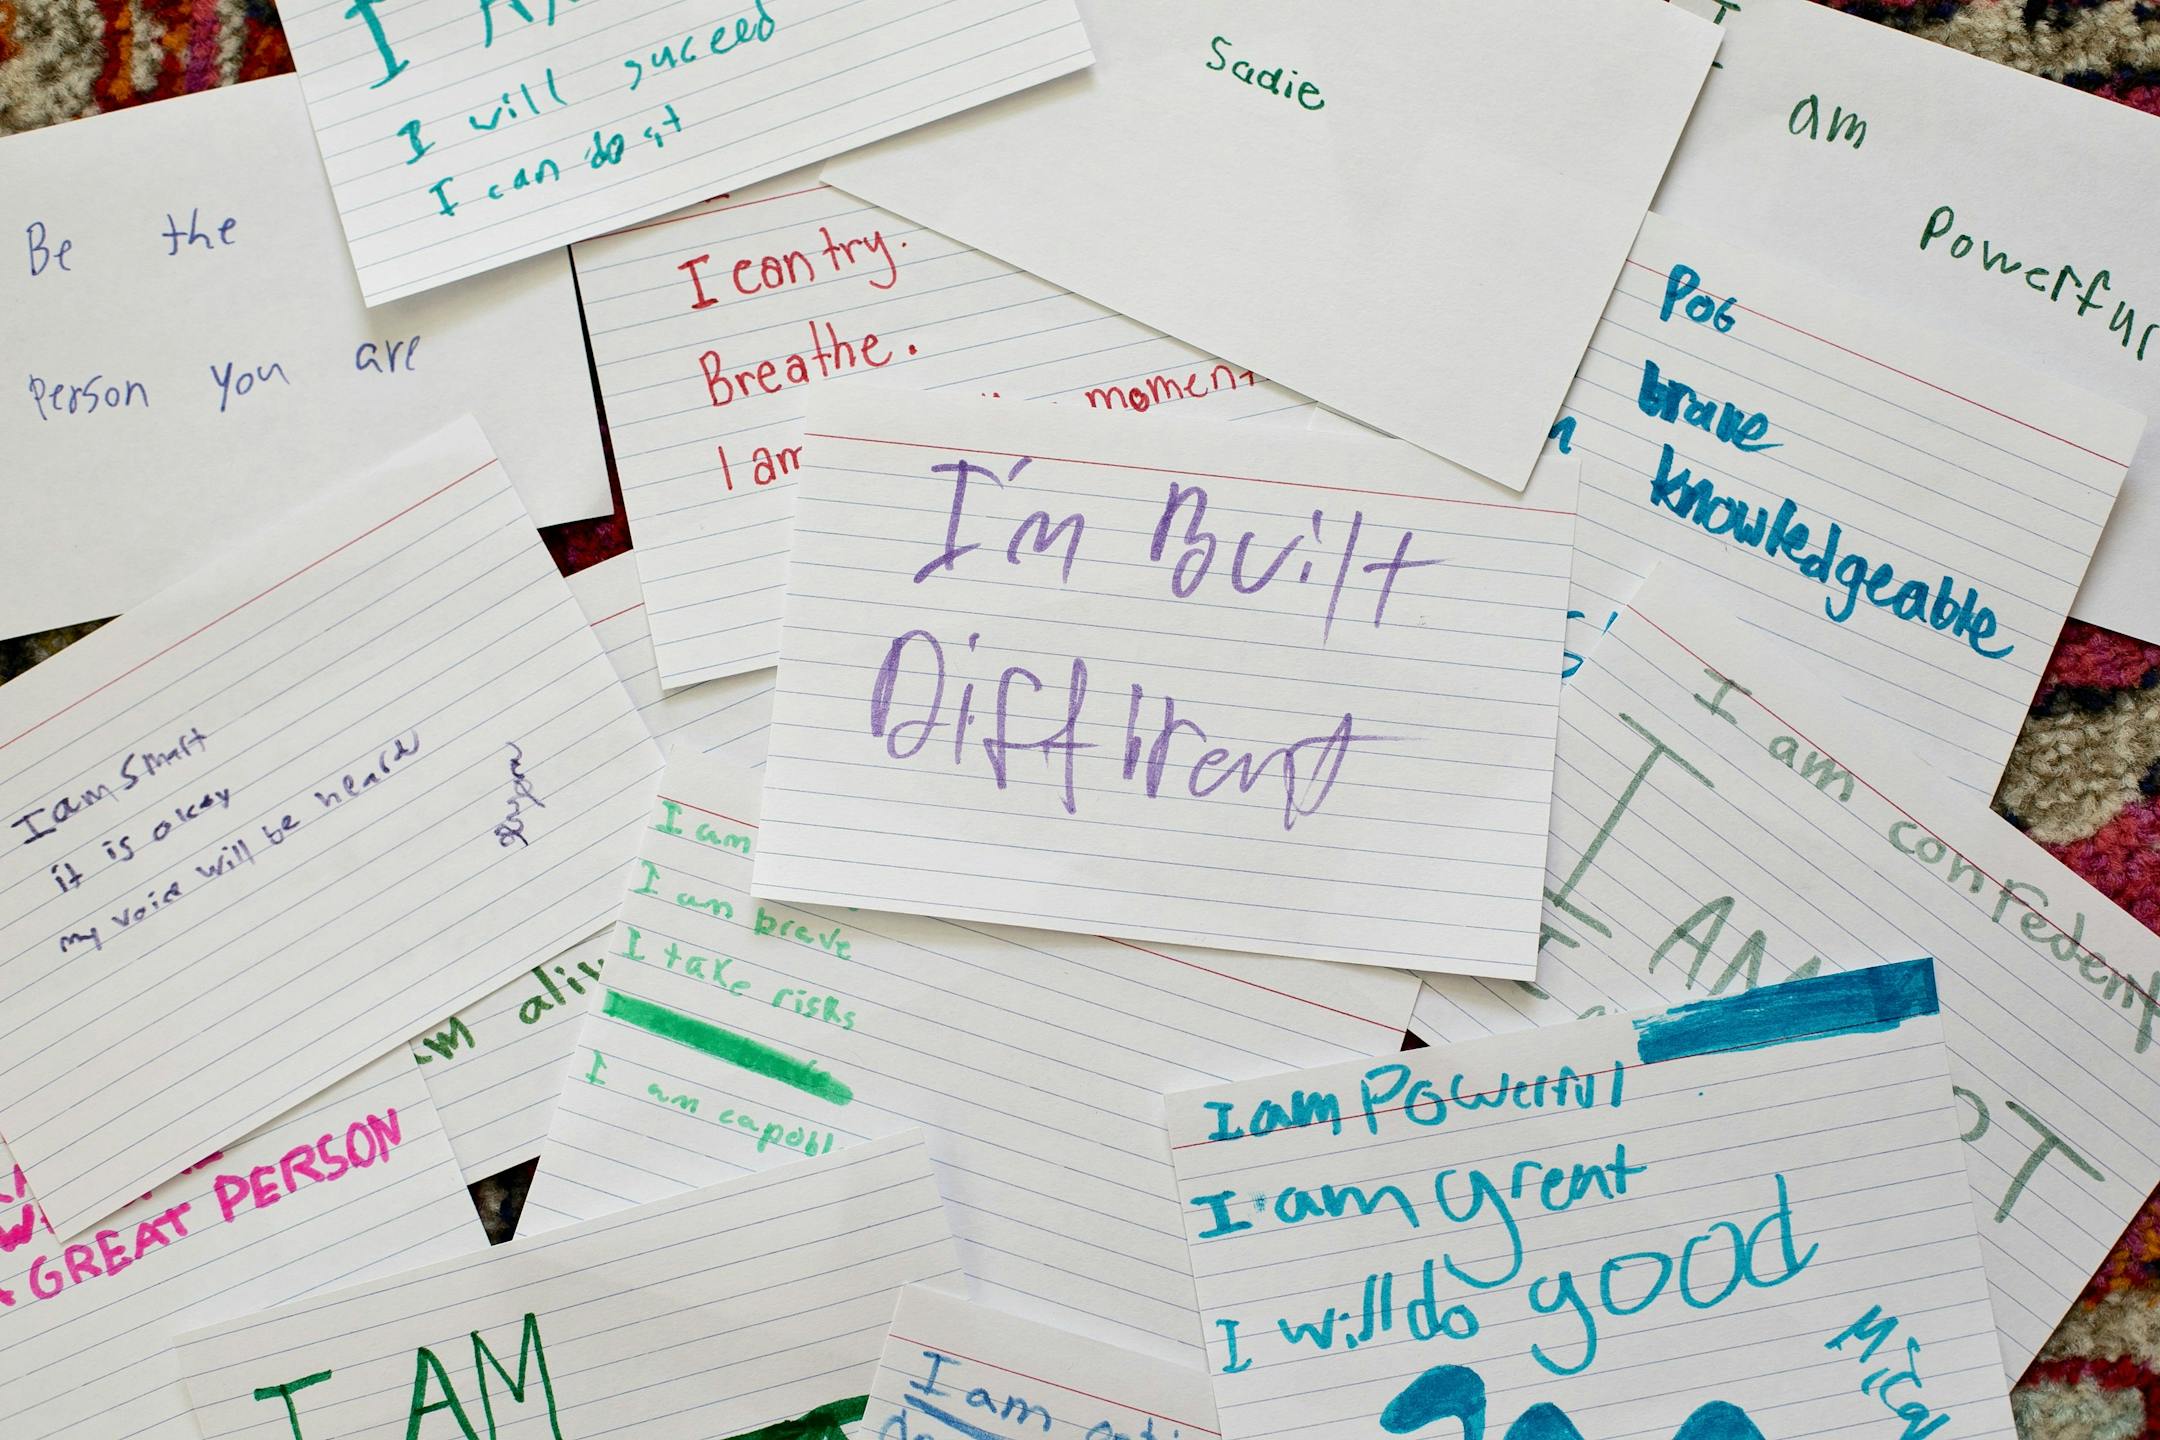 I
I will suceed
I can do it
Sadie
I
am
Powerful
Be the
Person you are
I can try.
Breathe.
moment
I am
POG
brave
knowledgeable
I'm Built
Different
I am smart
it is okay
my voice will be heard
I am confident
I AM
I am
I am brave
I take risks
I am capabl
am aliv
A GREAT PERSON
I am Powerful
I am great
I will do good
Mical
I AM
I am